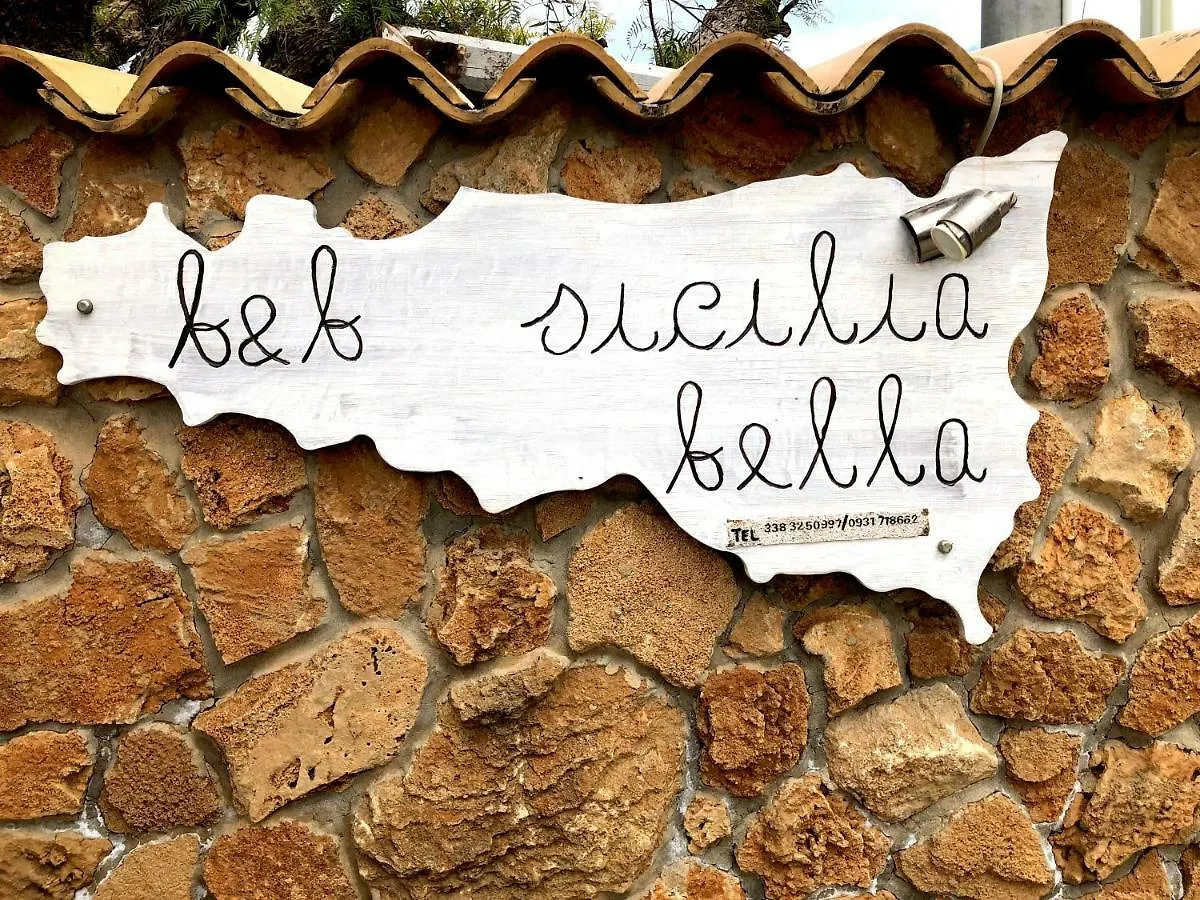 b&b sicilia
bella
TEL 338 3250997/0931 718662